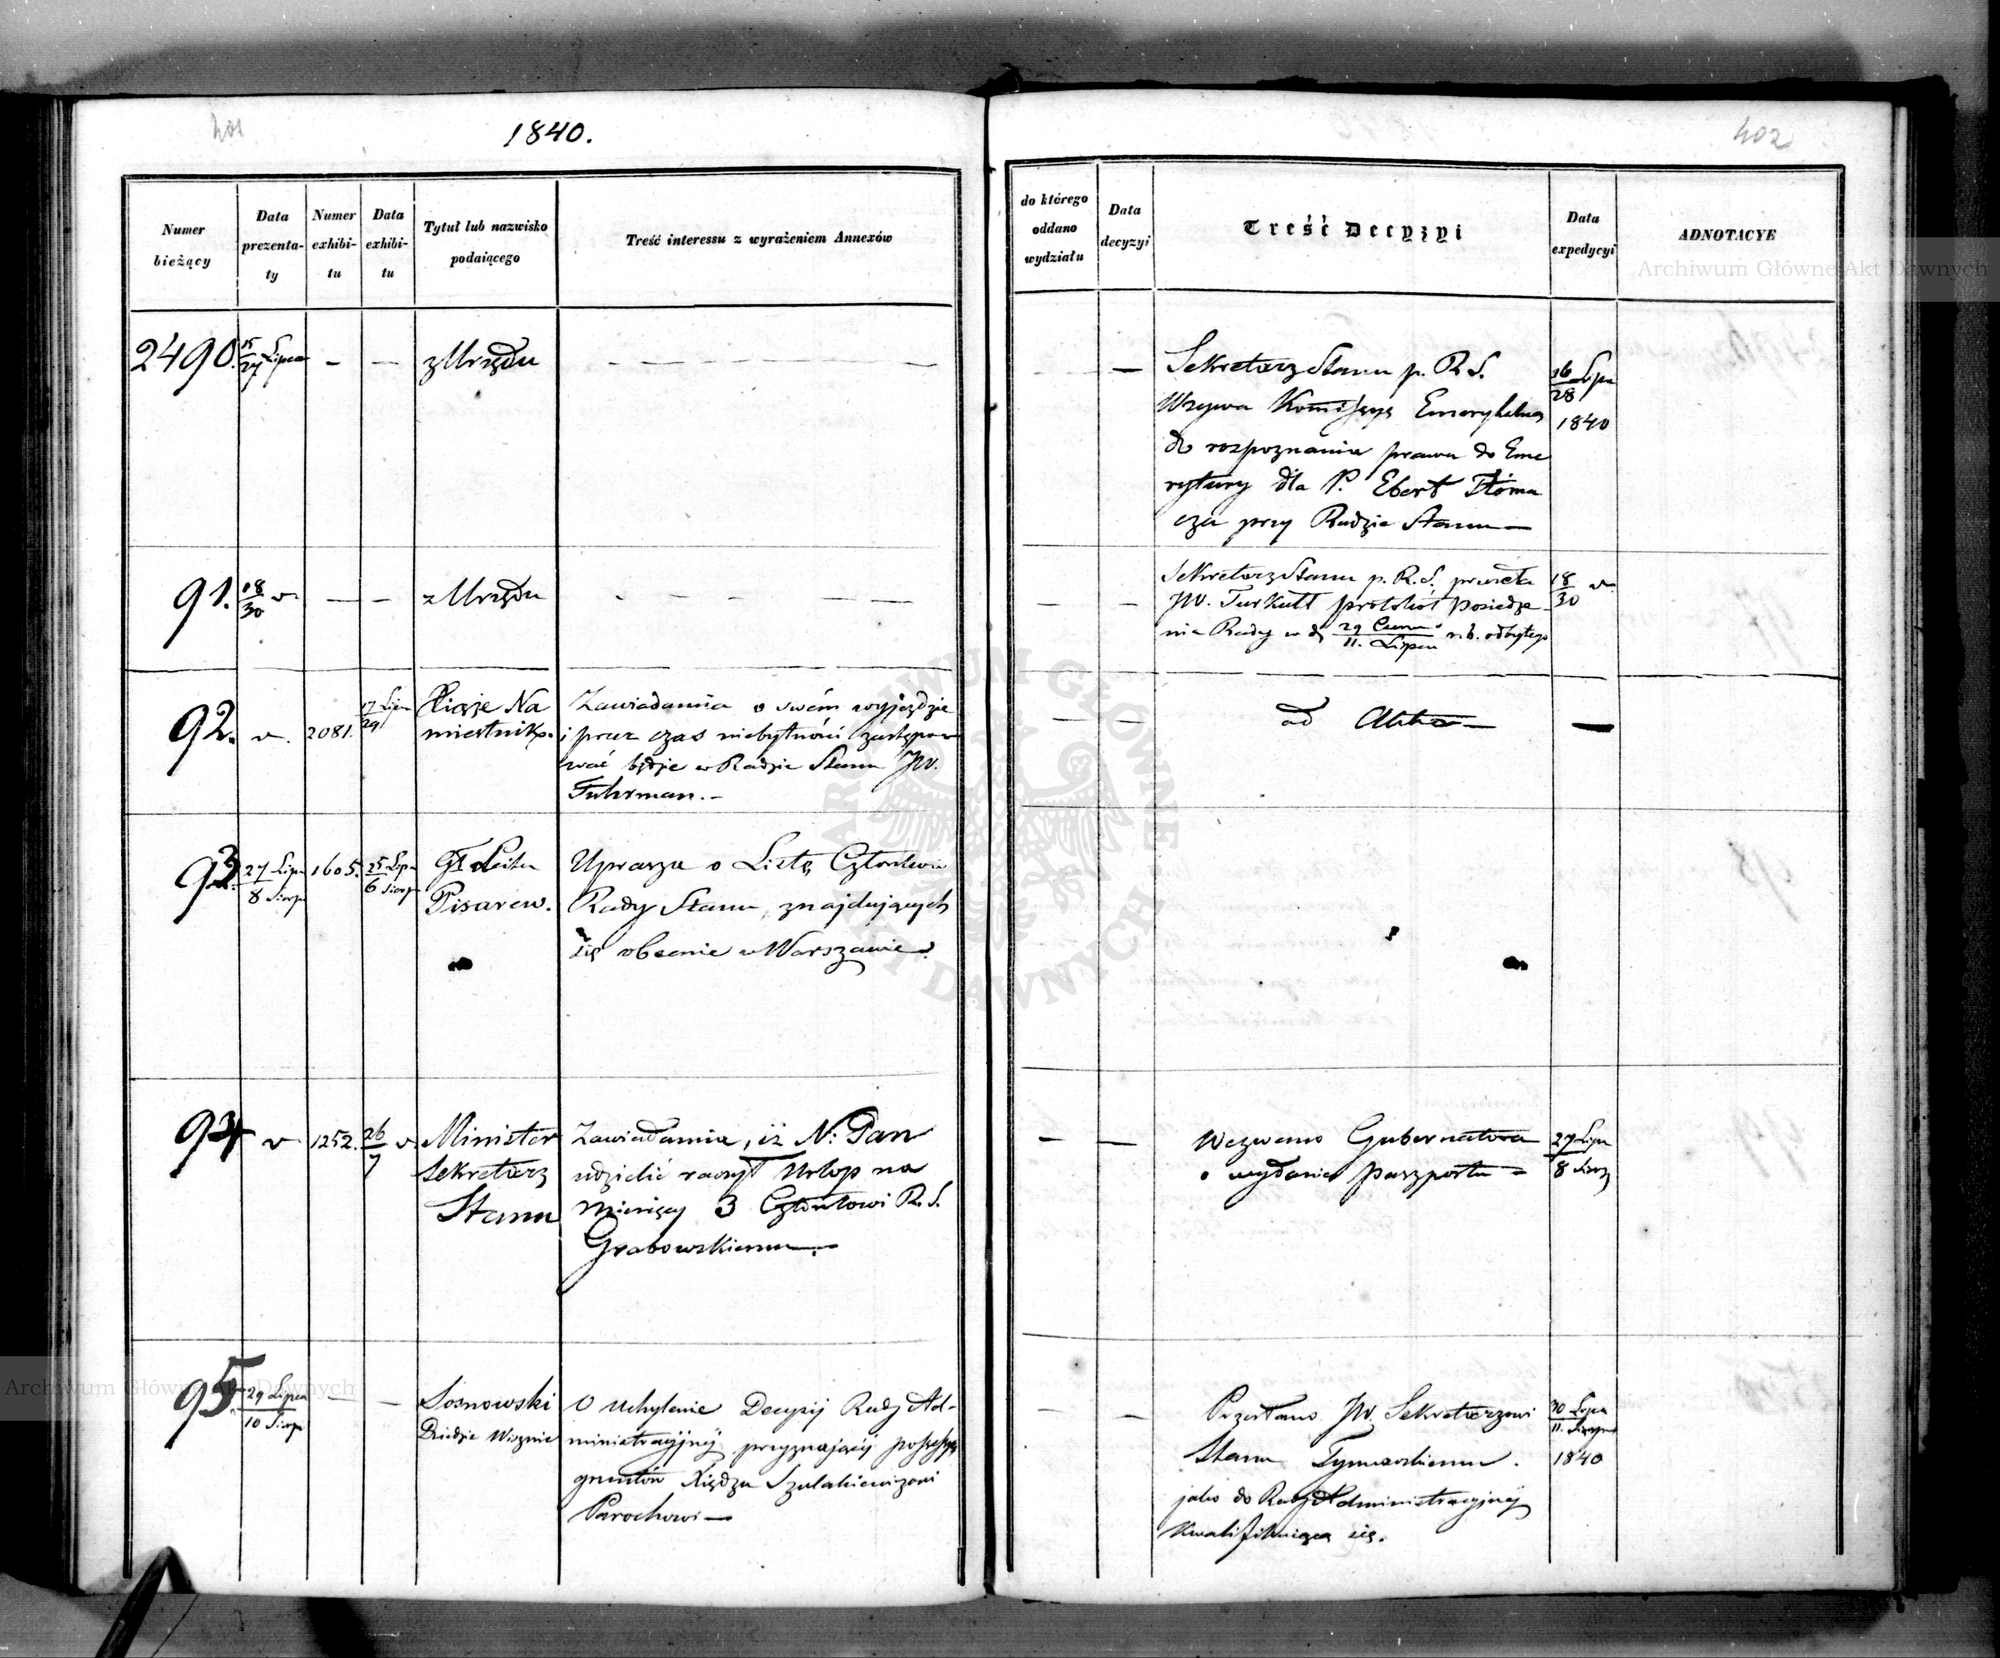 401
1840.
402
Numer
bieżący
Data
prezenta-
ty
Numer
exhibi-
tu
Data
exhibi-
tu
Tytuł lub nazwisko
podaiącego
Treść interessu z wyrażeniem Annexów
do którego
oddano
wydziału
Data
decyzyi
Treść Decyzyi
Data
expedycyi
ADNOTACYE
2490.
15/27 Lipca
z Urzędu
Sekretarz Stanu p. R. S.
Wzywa Kommissyę Emerytalną
do rozpoznania prawa do Eme
rytury dla P. Ebert Tłóma
cza przy Radzie Stanu
16/28 Lipca
1840
91.
18/30 v.
z Urzędu
Sekretarz Stanu p. R. S. przesła
JW. Turkułł protokół Posiedze
nia Rady w d. 29 Czerwca/11. Lipca r. b. odbytego
18/30 v.
92.
v.
2081.
17/29 Lipca
Xiąże Na
miestnik
Zawiadamia o swém wyjeździe
i przez czas niebytności zastępo
wać będzie w Radzie Stanu JW.
Fuhrman.
ad Acta
93.
27 Lipca/8 Sierp
1605.
25 Lipca/6 Sierp
Pisarew.
Uprasza o Listę Członków
Rady Stanu, znajdujących
się obecnie w Warszawie.
94
v
1252.
26/7 v.
Minister
Sekretarz
Stanu
Zawiadamia, iż N: Pan
udzielić raczył Urlop na
Miesięcy 3 Członkowi R. S.
Grabowskiemu.
Wezwano Gubernatora
o wydanie paszportu
27 Lipca/8 Sierp
95.
29 Lipca/10 Sierp
Sosnowski
Dziedzic Wisznic
O Uchylenie Decyzij Rady Ad-
ministracyjnéj przyznającéj possessyą
gruntów Xiędzu Szulakiewiczowi
Parochowi
Przesłano JW. Sekretarzowi
Stanu Tymowskiemu.
jako do Rady Administracyjnéj
Kwalifikująca się.
30 Lipca/11. Sierpnia
1840
Archiwum Główne Akt Dawnych
Archiwum Główne Akt Dawnych
ARCHIWUM GŁÓWNE AKT DAWNYCH